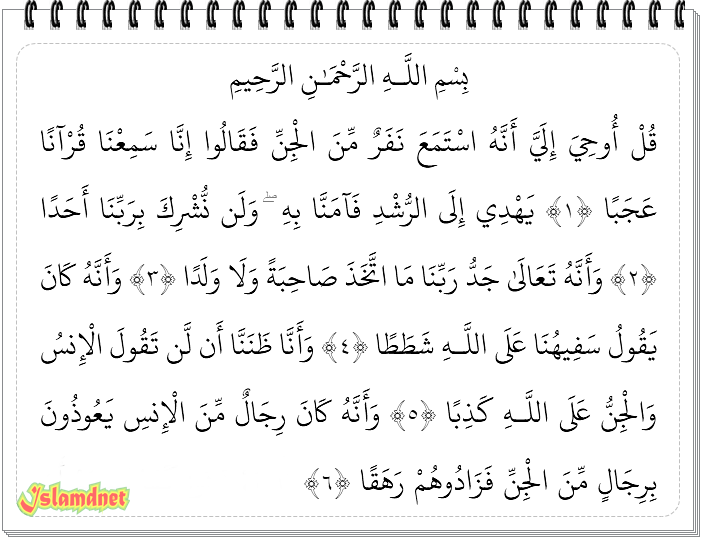 بِسْمِ اللَّـهِ الرَّحْمَـٰنِ الرَّحِيمِ
قُلْ أُوحِيَ إِلَيَّ أَنَّهُ اسْتَمَعَ نَفَرٌ مِّنَ الْجِنِّ فَقَالُوا إِنَّا سَمِعْنَا قُرْآنًا
عَجَبًا ﴿١﴾ يَهْدِي إِلَى الرُّشْدِ فَآمَنَّا بِهِ ۖ وَلَن نُّشْرِكَ بِرَبِّنَا أَحَدًا
﴿٢﴾ وَأَنَّهُ تَعَالَىٰ جَدُّ رَبِّنَا مَا اتَّخَذَ صَاحِبَةً وَلَا وَلَدًا ﴿٣﴾ وَأَنَّهُ كَانَ
يَقُولُ سَفِيهُنَا عَلَى اللَّـهِ شَطَطًا ﴿٤﴾ وَأَنَّا ظَنَنَّا أَن لَّن تَقُولَ الْإِنسُ
وَالْجِنُّ عَلَى اللَّـهِ كَذِبًا ﴿٥﴾ وَأَنَّهُ كَانَ رِجَالٌ مِّنَ الْإِنسِ يَعُوذُونَ
بِرِجَالٍ مِّنَ الْجِنِّ فَزَادُوهُمْ رَهَقًا ﴿٦﴾
Islamdnet